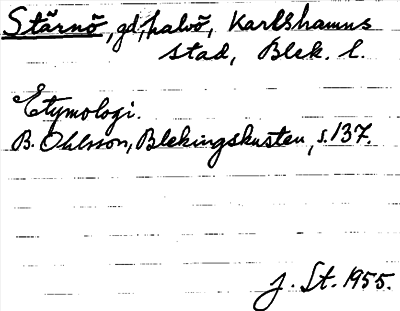 Stärnö, gd, halvö, Karlshamns
stad, Blek. l.
Etymologi.
B. Ohlsson, Blekingskusten, s. 137.
J. St. 1955.